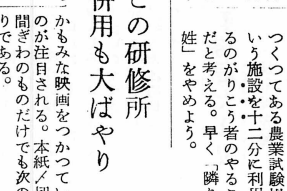 つくつてある農業試験
いう施設を十二分に利用
るのがりこう者のやるこ
だと考える。早く「隣り
姓」をやめよう。
この研修所
併用も大ばやり
かもみな映画をつかつてい
のが注目される。本紙
間ぎわのものだけでも次の
りである。